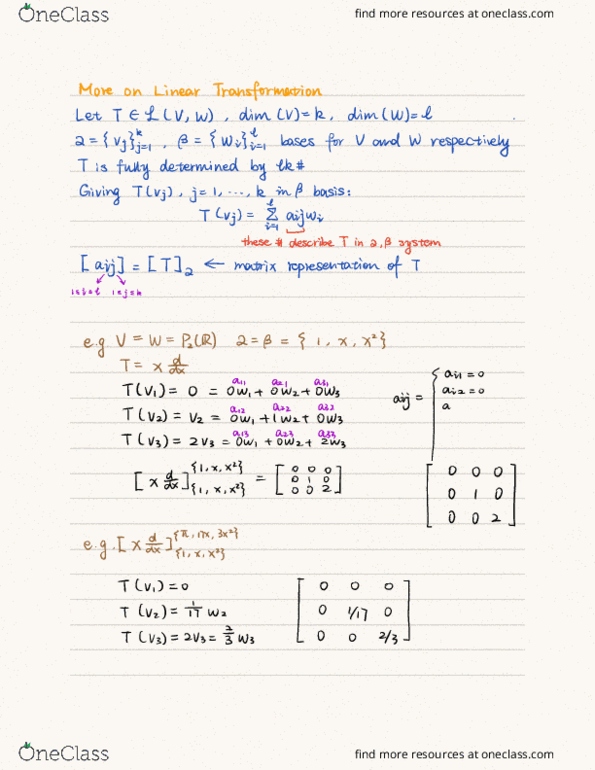 OneClass find more resources at oneclass.com
More on Linear Transformation
Let T ∈ L(V, W), dim(V)=k, dim(W)=l
2={vj}ᵏj=1, β={wi}ˡi=1 bases for V and W respectively
T is fully determined by lk#
Giving T(vj), j=1, ..., k in β basis:
T(vj) = Σˡi=1 aij wi
these # describe T in 2, β system
[aij] = [T]₂ ← matrix representation of T
1≤i≤l 1≤j≤k
e.g V = W = P₂(ℝ) 2=β={1, x, x²}
T = x d/dx
T(v₁) = 0 = 0w₁ + 0w₂ + 0w₃
a11 a21 a31
T(v₂) = v₂ = 0w₁ + 1w₂ + 0w₃
a12 a22 a32
T(v₃) = 2v₃ = 0w₁ + 0w₂ + 2w₃
a13 a23 a33
aij = { ai1 = 0
ai2 = 0
a
[x d/dx]^{1, x, x²}_{1, x, x²} = [0 0 0
0 1 0
0 0 2]
[0 0 0
0 1 0
0 0 2]
e.g. [x d/dx]^{π, 17x, 3x²}_{1, x, x²}
T(v₁)=0
T(v₂)= 1/17 w₂
T(v₃)=2v₃= 2/3 w₃
[0 0 0
0 1/17 0
0 0 2/3]
OneClass find more resources at oneclass.com